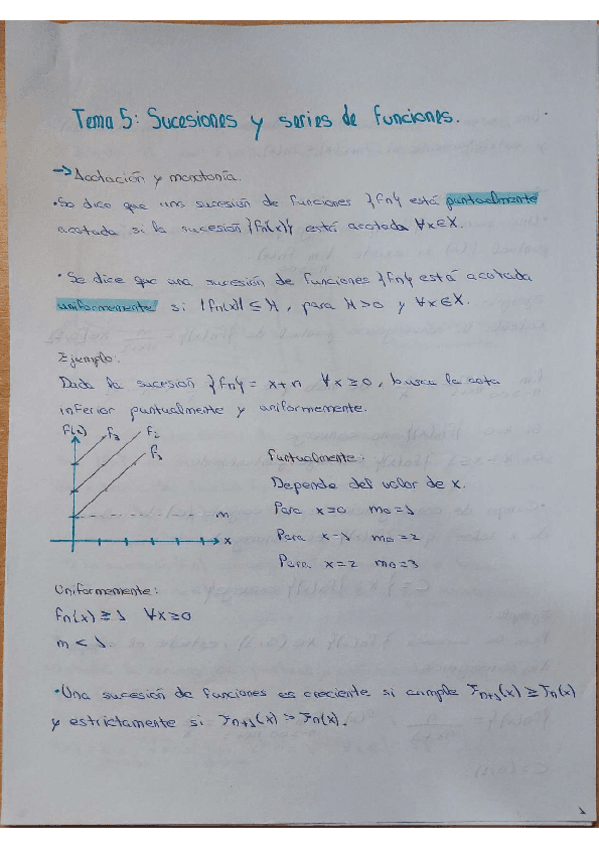 Tema 5: Sucesiones y series de funciones.
→ Acotación y monotonía.
• Se dice que una sucesión de funciones {fn} está puntualmente
acotada si la sucesión {fn(x)} está acotada ∀x∈X.
• Se dice que una sucesión de funciones {fn} está acotada
uniformemente si |fn(x)| ≤ M, para M>0 y ∀x∈X.
Ejemplo:
Dada la sucesión {fn} = x+n ∀x≥0, busca la cota
inferior puntualmente y uniformemente.
f(x) f3 f2
f1
m
x
Puntualmente:
Depende del valor de x.
Para x=0 m0=1
Para x=1 m0=2
Para x=2 m0=3
Uniformemente:
fn(x) ≥ 1 ∀x≥0
m < 1
• Una sucesión de funciones es creciente si cumple Fn+1(x) ≥ Fn(x)
y estrictamente si Fn+1(x) > Fn(x).
1